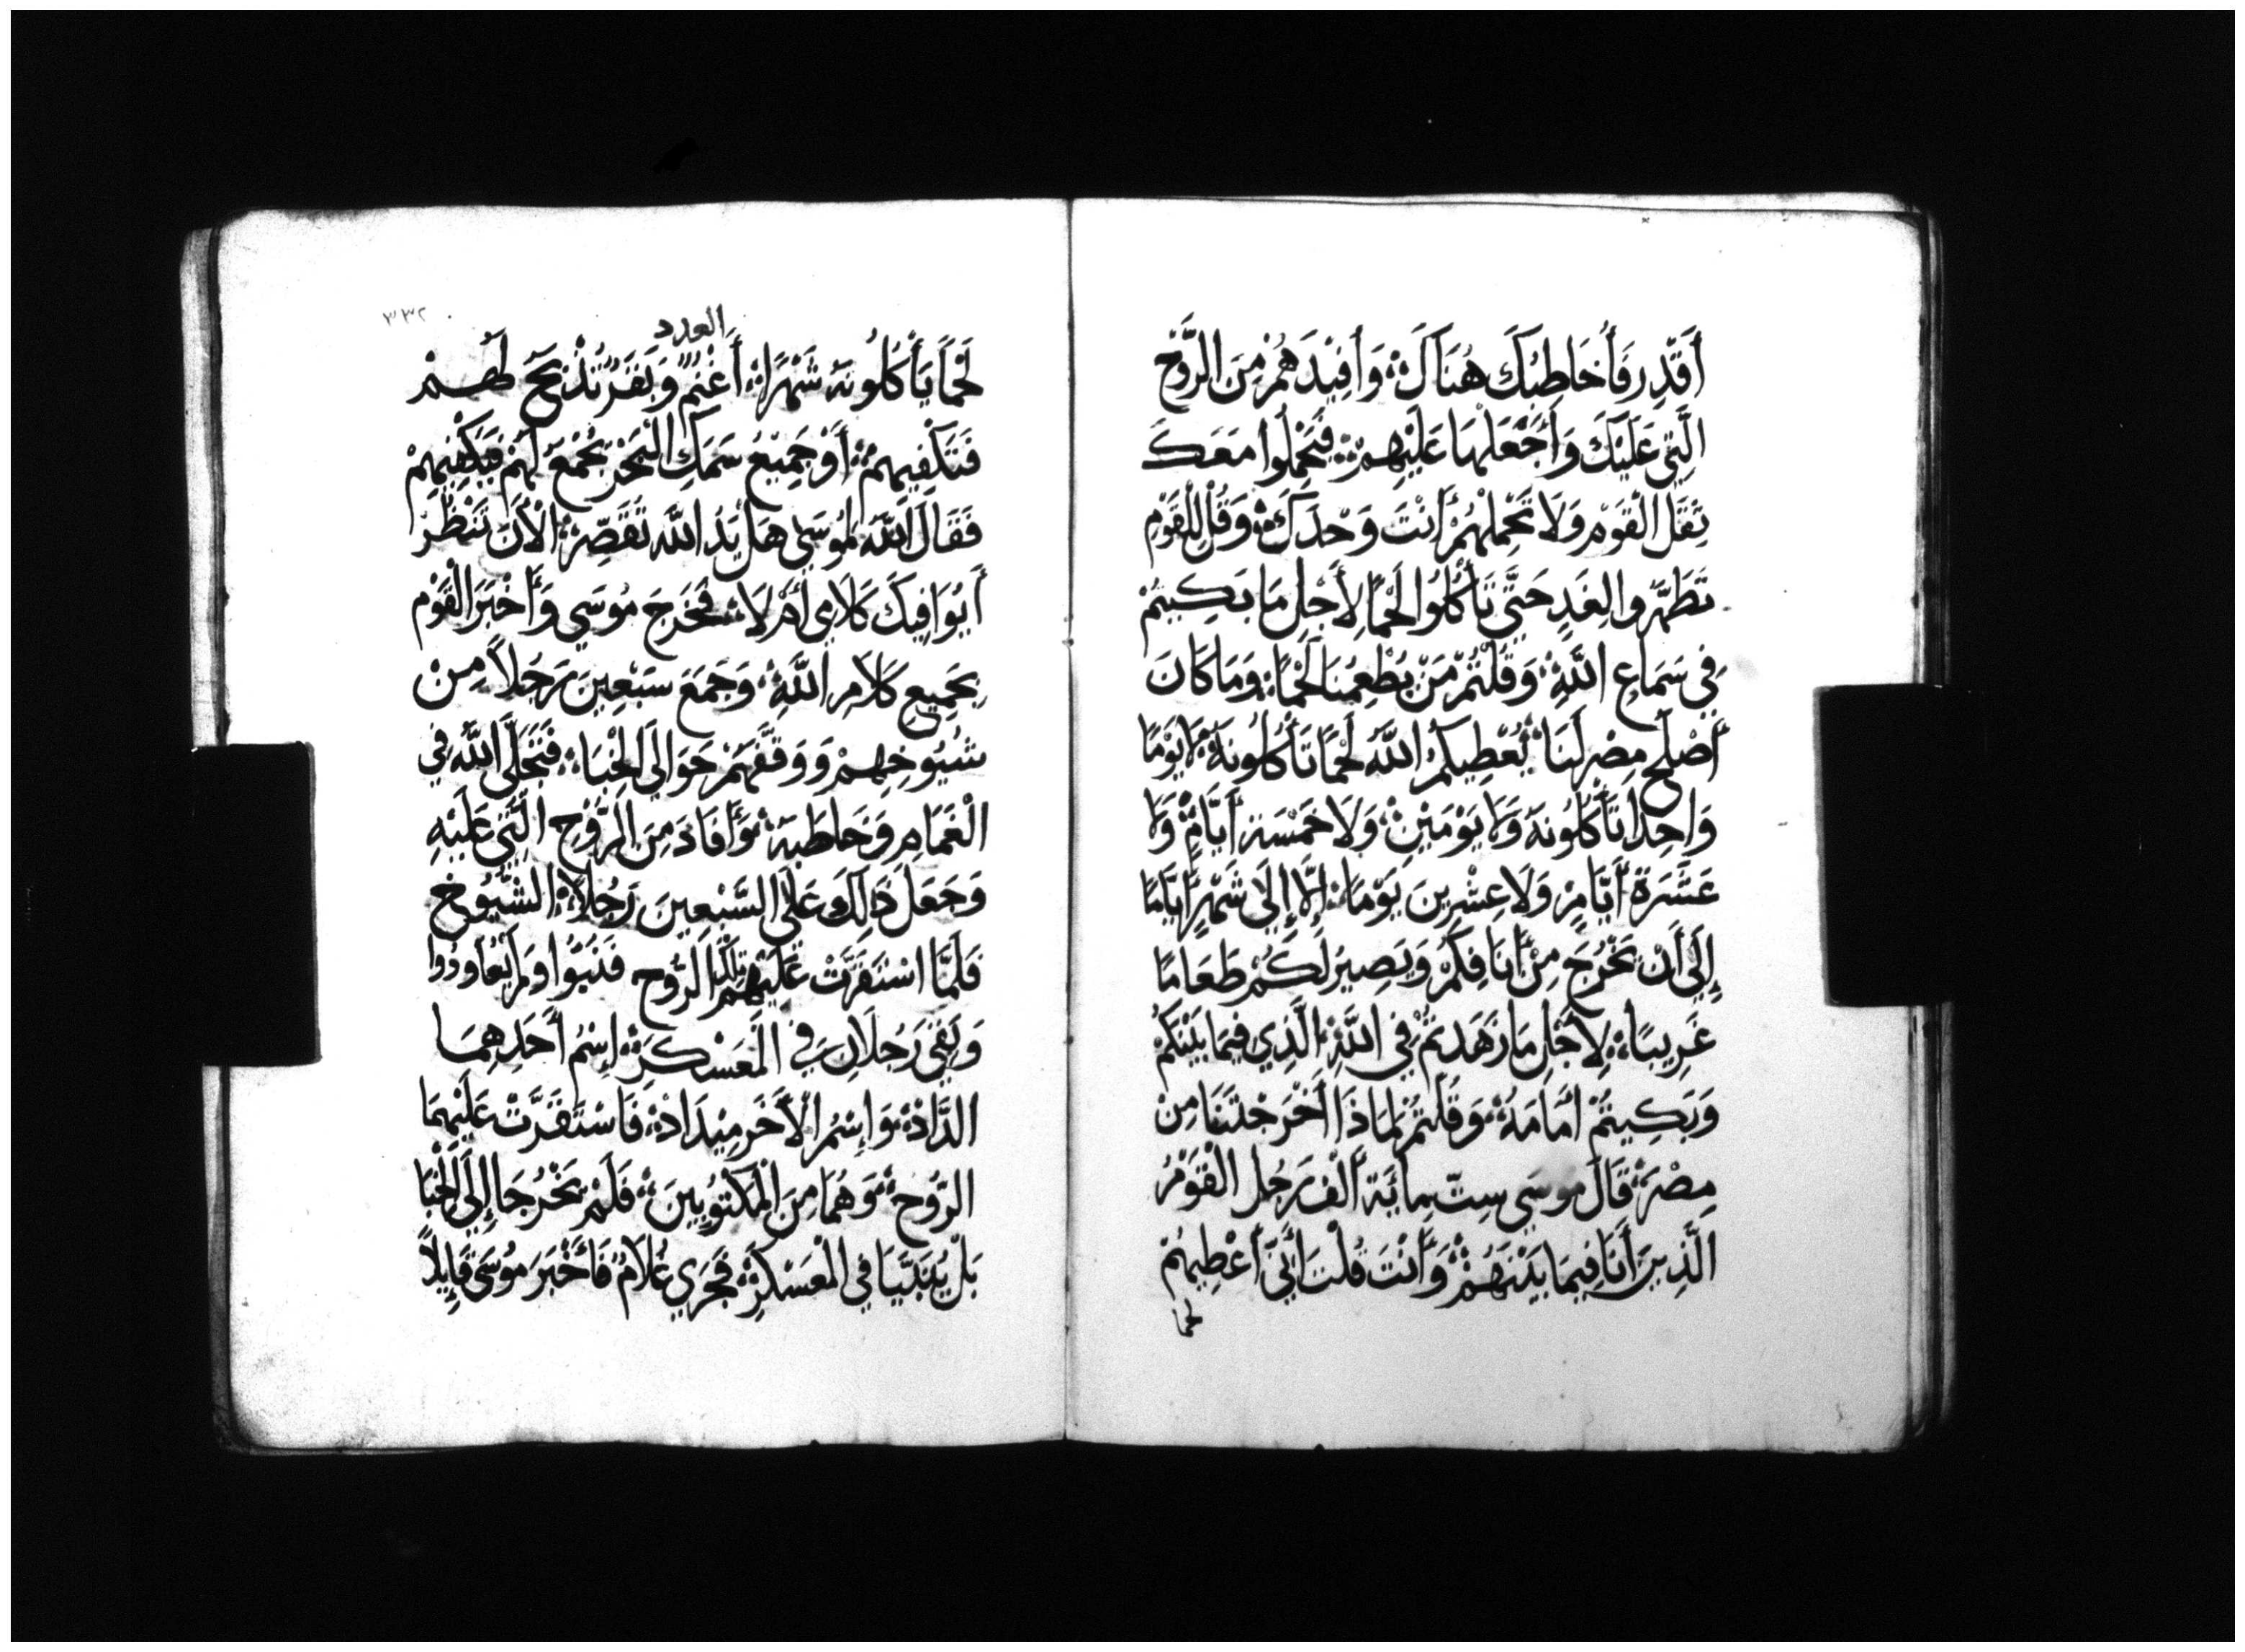 أَقْدِر فَأُخَاطِبُكَ هُنَاكَ؛ وَأُفِيدَهُمْ مِنَ الرُّوْحِ
الَّتِي عَلَيْكَ وَأَجْعَلُهَا عَلَيْهِمْ؛ فَتَحْمِلُوا مَعَكَ
ثِقَلَ الْقَوْمِ وَلَا تَحْمِلُهُمْ أَنْتَ وَحْدَكَ؛ وَقُل لِلْقَوْمِ
تَطَهَّرُوا لِغَدٍ حَتَّى تَأْكُلُوا لَحْمًا لِأَجْلِ مَا بَكِيتُمْ
فِي سَمَاعِ اللَّهِ؛ وَقُلْتُمْ مَنْ يُطْعِمُنَا لَحْمًا؛ وَمَا كَانَ
أَصْلَحَ مِصْرَ لَنَا؛ يُعْطِيكُمُ اللَّهُ لَحْمًا تَأْكُلُونَهُ؛ لَا يَوْمًا
وَاحِدًا تَأْكُلُونَهُ وَلَا يَوْمَيْنِ؛ وَلَا خَمْسَةِ أَيَّامٍ وَلَا
عَشَرَةَ أَيَّامٍ وَلَا عِشْرِينَ يَوْمًا؛ إِلَّا إِلَى شَهْرٍ أَيَّامًا
إِلَى أَنْ يَخْرُجَ مِنْ أَنَافِكُمْ وَيَصِيرَ لَكُمْ طَعَامًا
غَرِيبًا؛ لِأَجْلِ مَا زَهَدتُمْ فِي اللَّهِ؛ الَّذِي فِيمَا بَيْنَكُمْ
وَبَكِيتُمْ أَمَامَهُ؛ وَقُلْتُمْ لِمَاذَا أَخْرَجْتَنَا مِن
مِصْرَ؛ قَالَ مُوسَى سِتّ مِائَةَ أَلْف رَجُل الْقَوْمُ
الَّذِينَ أَنَا فِيمَا بَيْنَهُمْ؛ وَأَنْتَ قُلْتَ أَنِّي أُعْطِيهُمْ
لحما
٣٣٢
العدد
لَحْمًا يَأْكُلُونَهُ شَهْرًا؛ أَغْنَمٌ وَبَقَرٌ تُذْبَحَ لَهُمْ
فَتَكْفِيهِمْ؛ أَوْ جَمِيْعَ سَمَكِ الْبَحْرِ يُجْمَعُ لَهُمْ فَيَكْفِيهِمْ
فَقَالَ اللَّهُ لِمُوسَى هَلْ يَدُ اللَّه تَقَصِّر؛ الْأَنَ تَنْظُرُ
أَيُوَافِيكَ كَلَامِي أَمْ لَا؛ فَخَرَجَ مُوسَى وَأَخْبَرَ الْقَوْمَ
بِجَمِيعِ كَلَامِ اللَّهِ؛ وَجَمَعَ سَبْعِينَ رَجُلاً مِنْ
شُيُوخِهِمْ وَوَقَّفَهُمْ حَوَالَي الْخِبَا؛ فَتَجَلَّى اللَّهُ فِي
الْغَمَامِ وَخَاطَبَهُ؛ وَأَفَادَ مِنَ الرُّوْحِ الَّتِي عَلَيْهِ
وَجَعَلَ ذَلِكَ عَلَى السَّبْعِينَ رَجُلاً؛ الشُّيُوخ
فَلَمَّا اسْتَقَرَّتْ عَلَيْهِمْ تِلْكَ الرُّوح فَنُبُوا وَلَمْ يُعَاوِدُوا
وَبَقِيَ رَجُلَانِ فِي الْمَعَسْكَرِ؛ إِسْمُ أَحَدِهِمَا
الدَّادْ؛ وَإِسْمُ الْأَخَرِ مِيْدَادْ؛ فَاسْتَقَرَّتْ عَلَيْهِمَا
الرُّوحُ؛ وَهُمَا مِنَ الْمَكْتُوبِينَ؛ فَلَمْ يَخْرُجَا إِلَى الْخِبَا
بَلْ يُنَبَّيَا فِي الْمَعَسْكَرِ؛ فَجَرَي غُلَامٌ فَأَخْبَرَ مُوسَى قَائِلاً